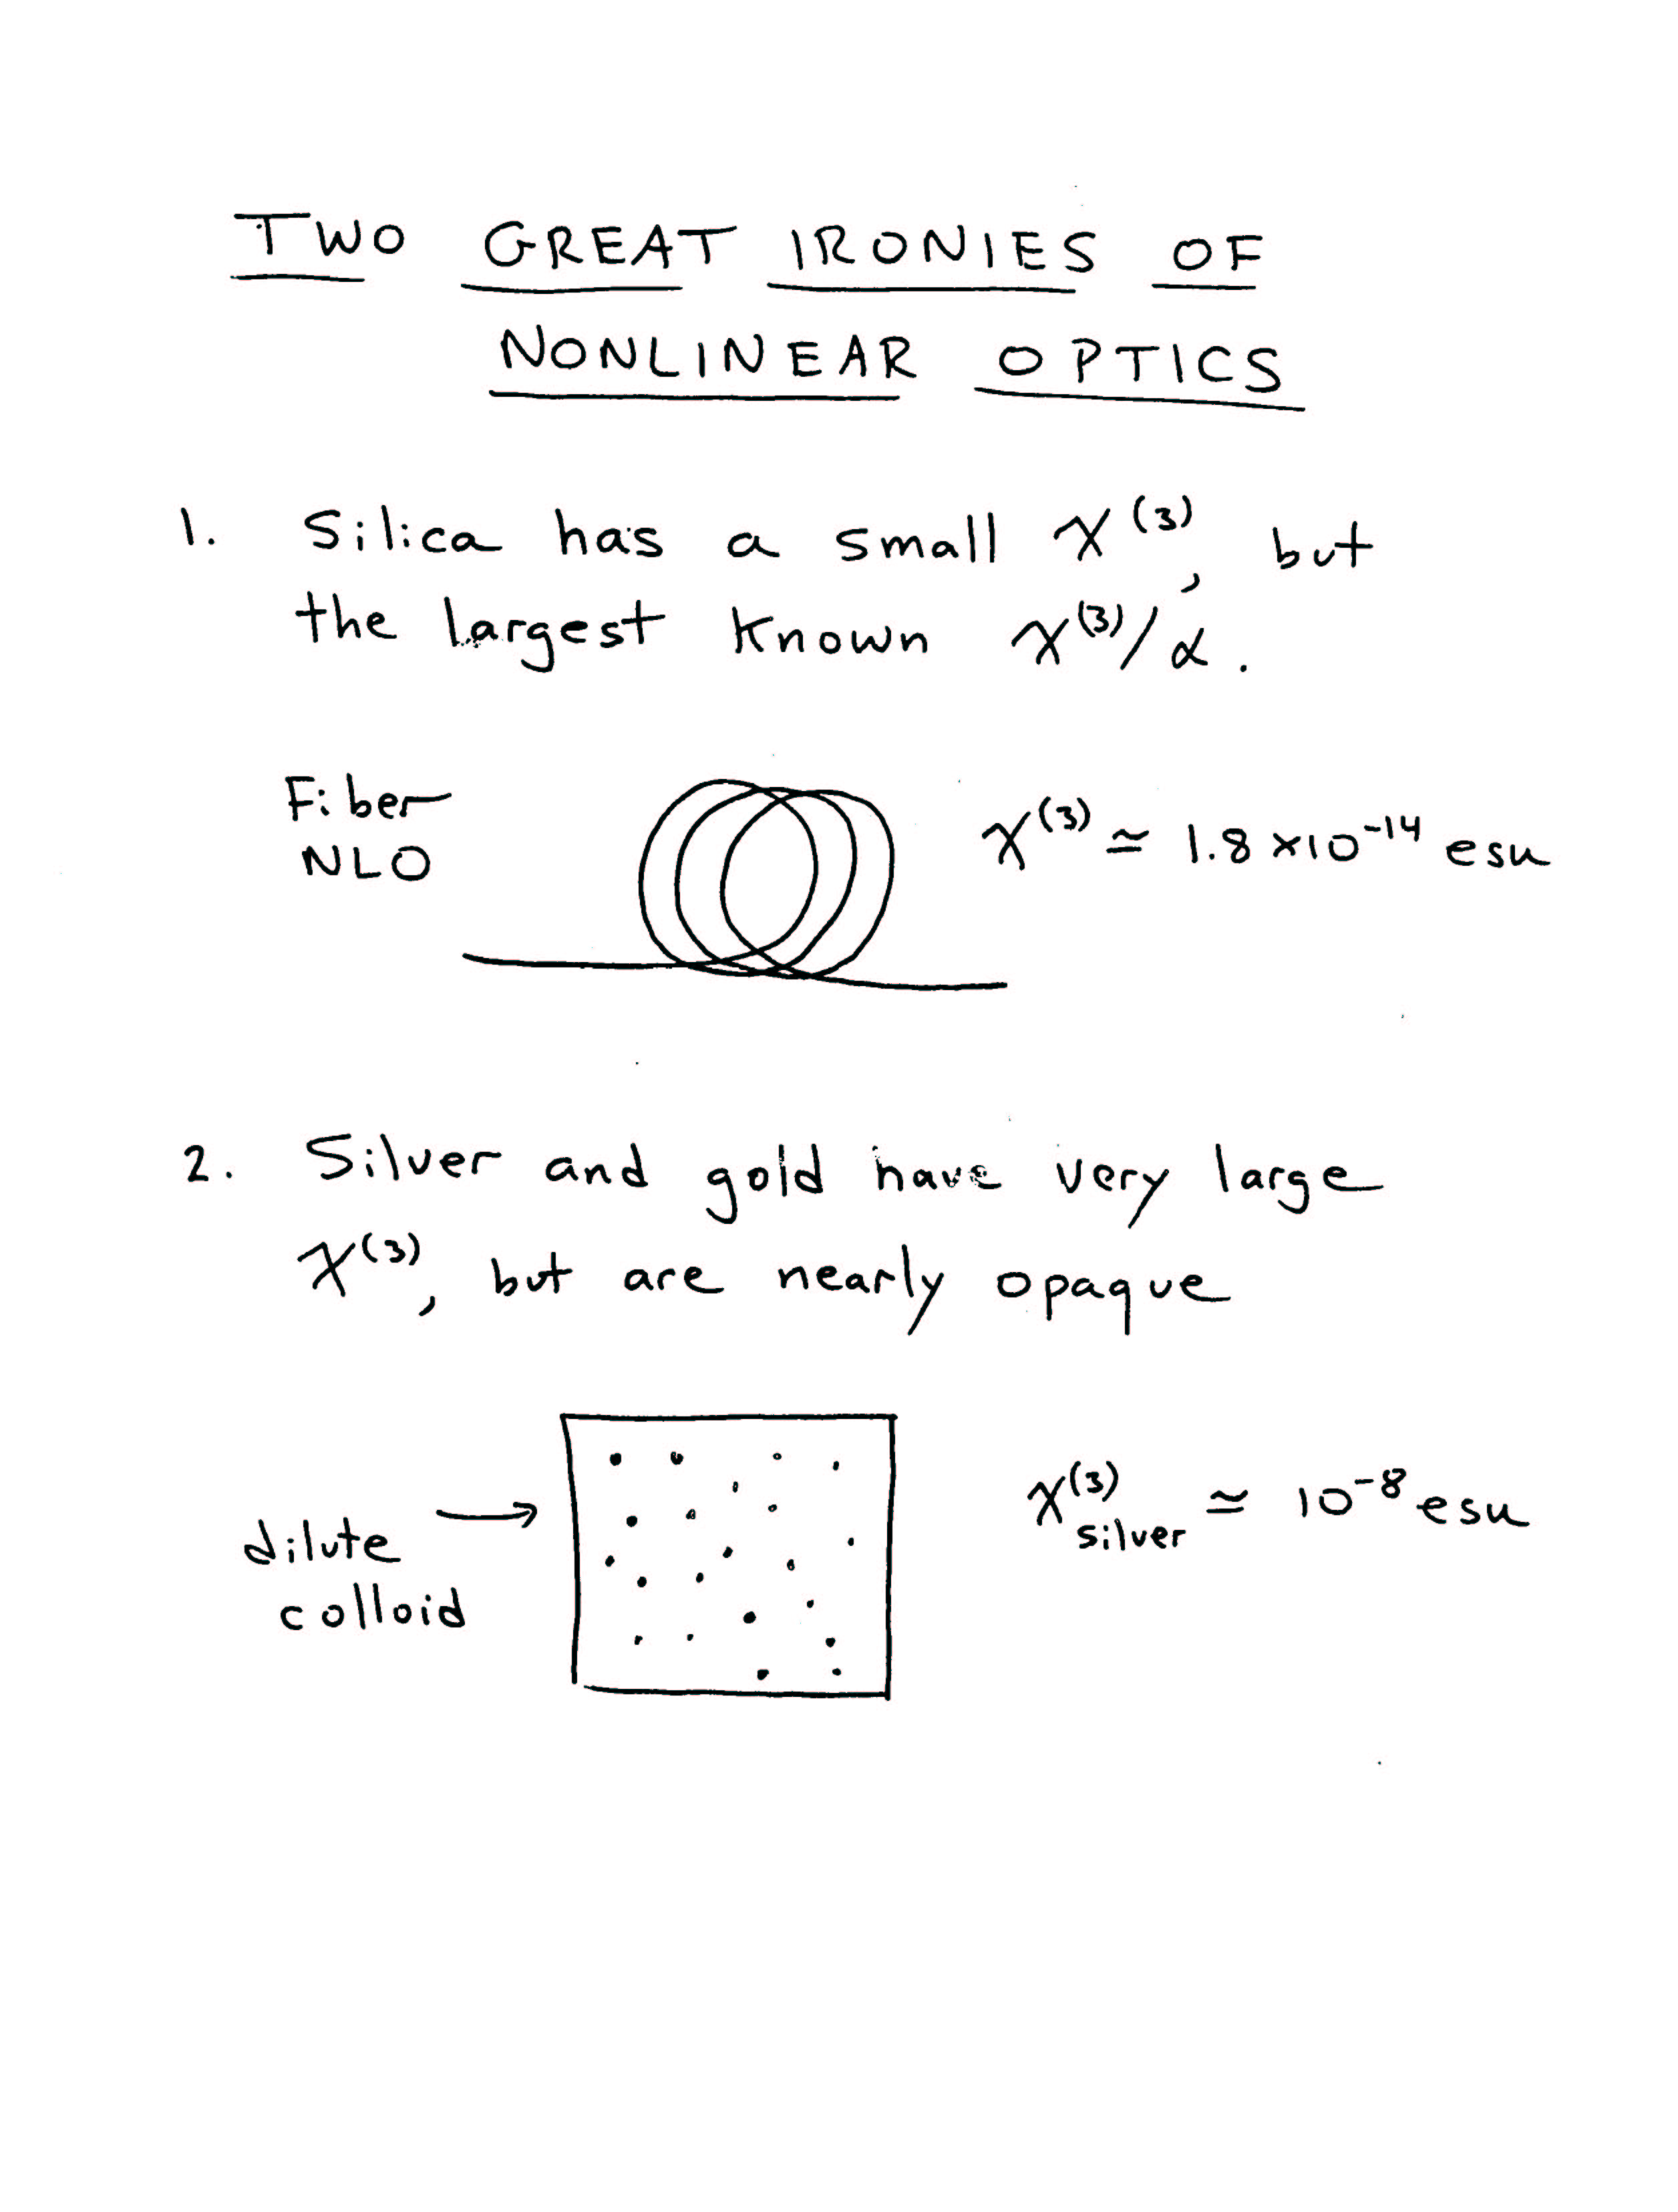 TWO GREAT IRONIES OF
NONLINEAR OPTICS
1. Silica has a small χ⁽³⁾, but
the largest known χ⁽³⁾/α.
Fiber
NLO
χ⁽³⁾ ≃ 1.8 ×10⁻¹⁴ esu
2. Silver and gold have very large
χ⁽³⁾, but are nearly opaque
dilute
colloid
χ⁽³⁾silver ≃ 10⁻⁸ esu